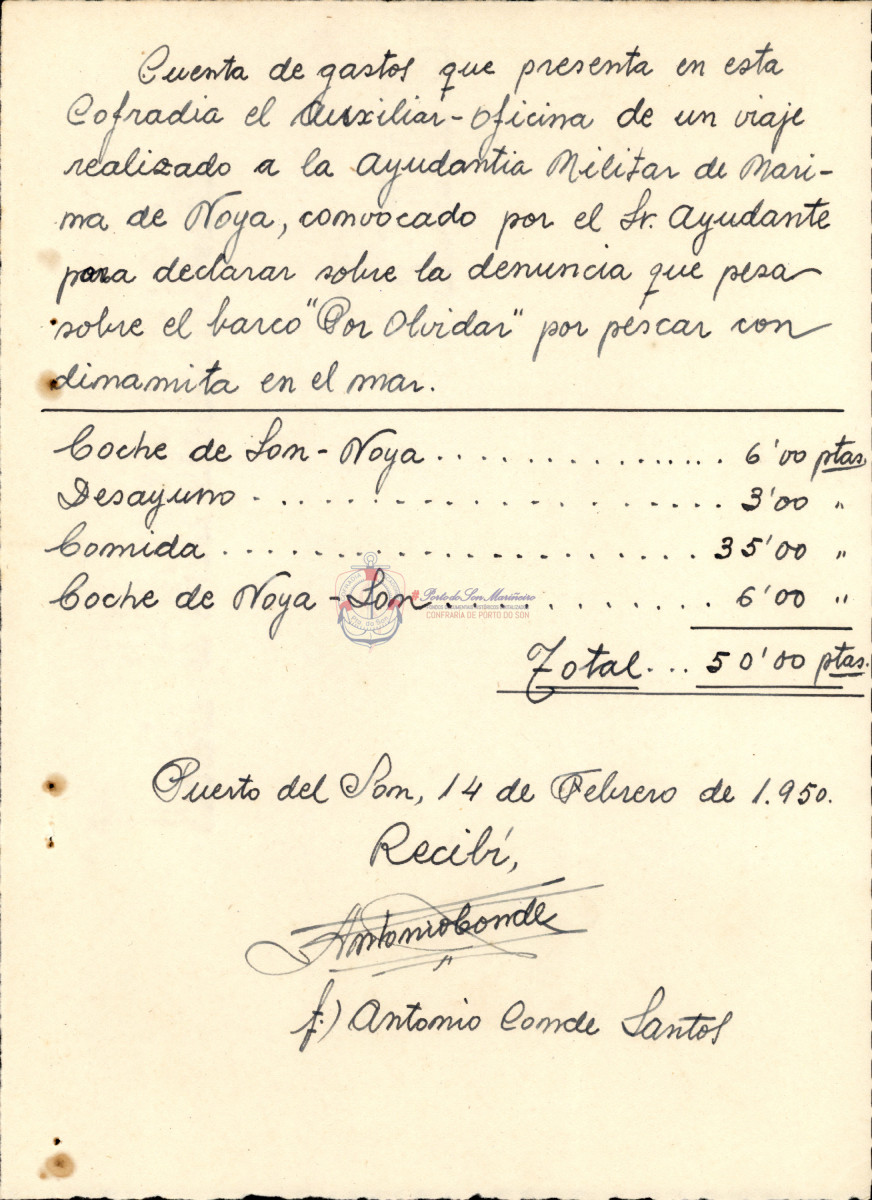 Cuenta de gastos que presenta en esta
Cofradia el Auxiliar-oficina de un viaje
realizado a la Ayudantia Militar de Mari-
na de Noya, convocado por el Sr. Ayudante
para declarar sobre la denuncia que pesa
sobre el barco "Por Olvidar" por pescar con
dinamita en el mar.
Coche de Son - Noya .................. 6'00 ptas.
Desayuno .................. 3'00 "
Comida .................. 35'00 "
Coche de Noya - Son .................. 6'00 "
#Porto do Son Mariñeiro
CONFRARIA DE PORTO DO SON
Pto. do Son
Total ... 50'00 ptas.
Puerto del Son, 14 de Febrero de 1.950.
Recibí,
Antonio Conde
f.) Antonio Conde Santos